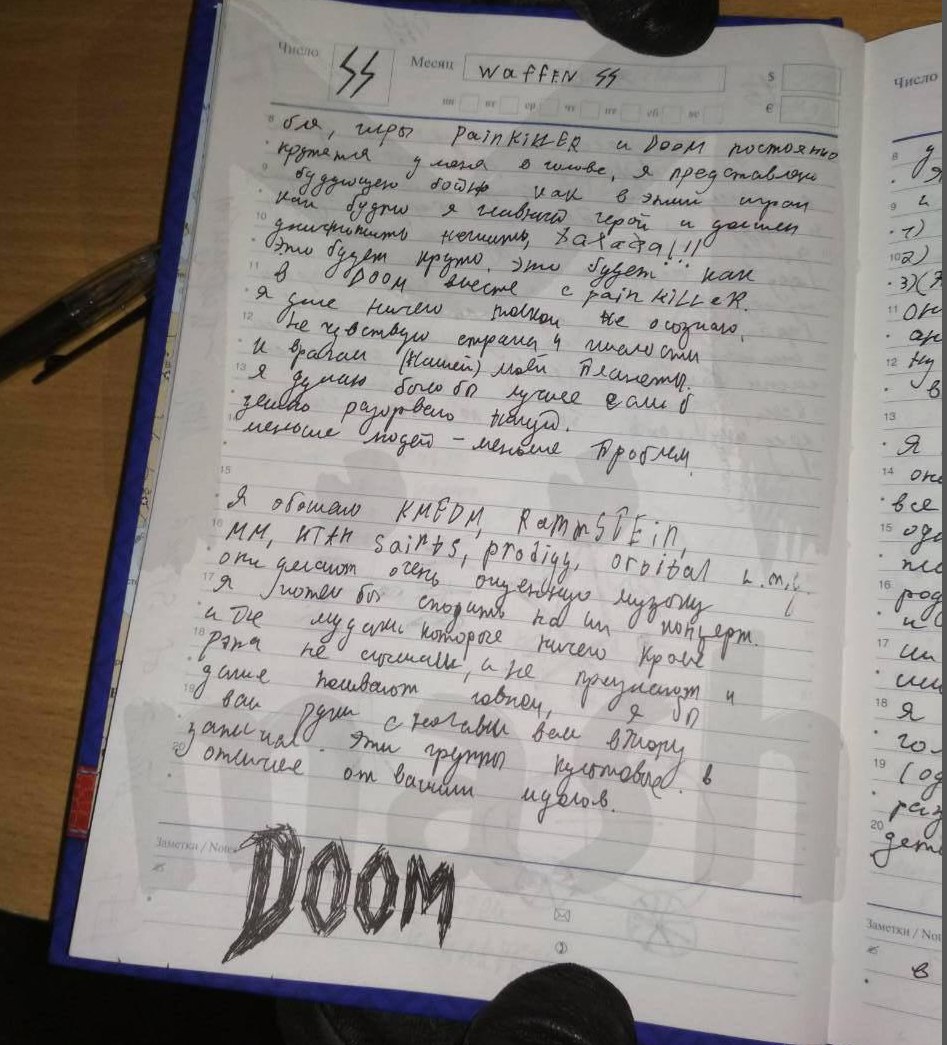 Число ϟϟ Месяц WaffEN ϟϟ $
пн вт ср чт пт сб вс €
8 бля, игры PainKiLLER и DOOM постоянно
кружатся у меня в голове, я представляю
9 будующею бойню как в этих играх
как будто я главный герой и должен
10 уничтожить нечисть, Хахаха!!!
Это будет круто. это будет как
11 в DOOM вместе с pain KiLLeR.
Я даже ничего толком не осознаю,
12 не чувствую страха и жалости
к врагам (нашей) моей планеты.
13 Я думаю было бы лучшее если б
землю разорвало нахуй.
14 меньше людей - меньше проблем.
15
Я обожаю KMFDM, RammSTEin,
16 MM, UTAH Saints, prodigy, orbital и.т.д.
они делают очень охуенную музыку
17 Я хотел бы сходить на их концерт.
и те мудаки которые ничего кроме
18 рэпа не слышали, и не признают и
даже называют говном, я бы
19 вам руки с ногами вам в жопу
запихал. эти группы культовые в
20 отличие от ваших идолов.
Заметки / Notes
DOOM
mash
Число
8
9
1)
10 2)
3)
11
12
13
Я
14
все
15
16 род
и
17
18 Я
19
20
Заметки / Not
в